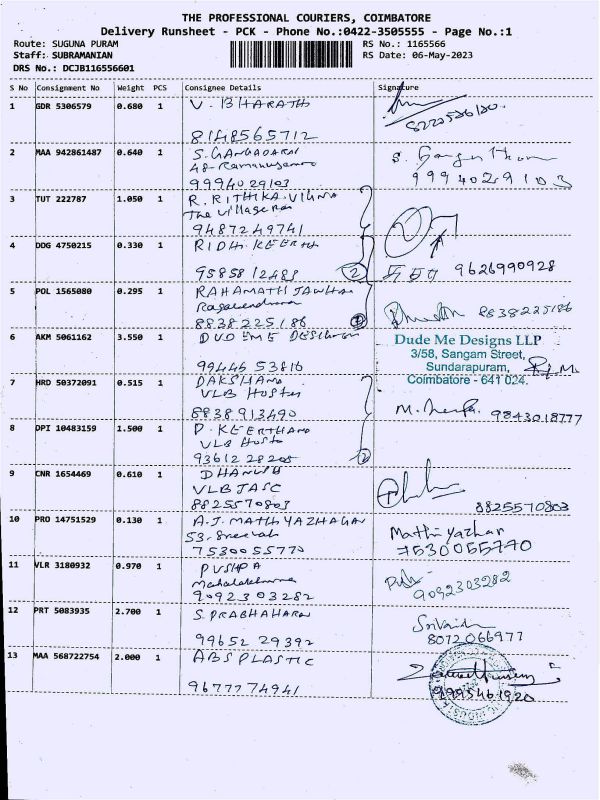 THE PROFESSIONAL COURIERS, COIMBATORE
Delivery Runsheet - PCK - Phone No.:0422-3505555 - Page No.:1
Route: SUGUNA PURAM RS No.: 1165566
Staff: SUBRAMANIAN RS Date: 06-May-2023
DRS No.: DCJB116556601
S No Consignment No Weight PCS Consignee Details Signature
1 GDR 5306579 0.680 1 V. BHARATH
8148565712
2 MAA 942861487 0.640 1 S. GANGADARAN
48-
9994029103 9994029103
3 TUT 222787 1.050 1 R. RITHIKA
The village
9487249741
4 DDG 4750215 0.330 1 RIDHI KEERTH
9585812483 2 9626990928
5 POL 1565080 0.295 1 RAHAMATH
8838225186 8838225186
6 AKM 5061162 3.550 1
99445 53816
Dude Me Designs LLP
3/58, Sangam Street,
Sundarapuram,
Coimbatore - 641 024.
7 HRD 50372091 0.515 1 DAKSHANA
VLB Hostel
8838913490 9843018777
8 DPI 10483159 1.500 1 P. KEERTHANA
VLB
93612 28205 2
9 CNR 1654469 0.610 1
VLB JASC
8825570803 8825570803
10 PRO 14751529 0.130 1 A.J. MATHIYAZHAGAN Mathiyazhan
53,
7530055770 7530055770
11 VLR 3180932 0.970 1 PUSHPA
9092303282 9092303282
12 PRT 5083935 2.700 1 S. PRABHAHARAN
99652 29392 8072066977
13 MAA 568722754 2.000 1 ABS PLASTIC
9677774941 9995461920